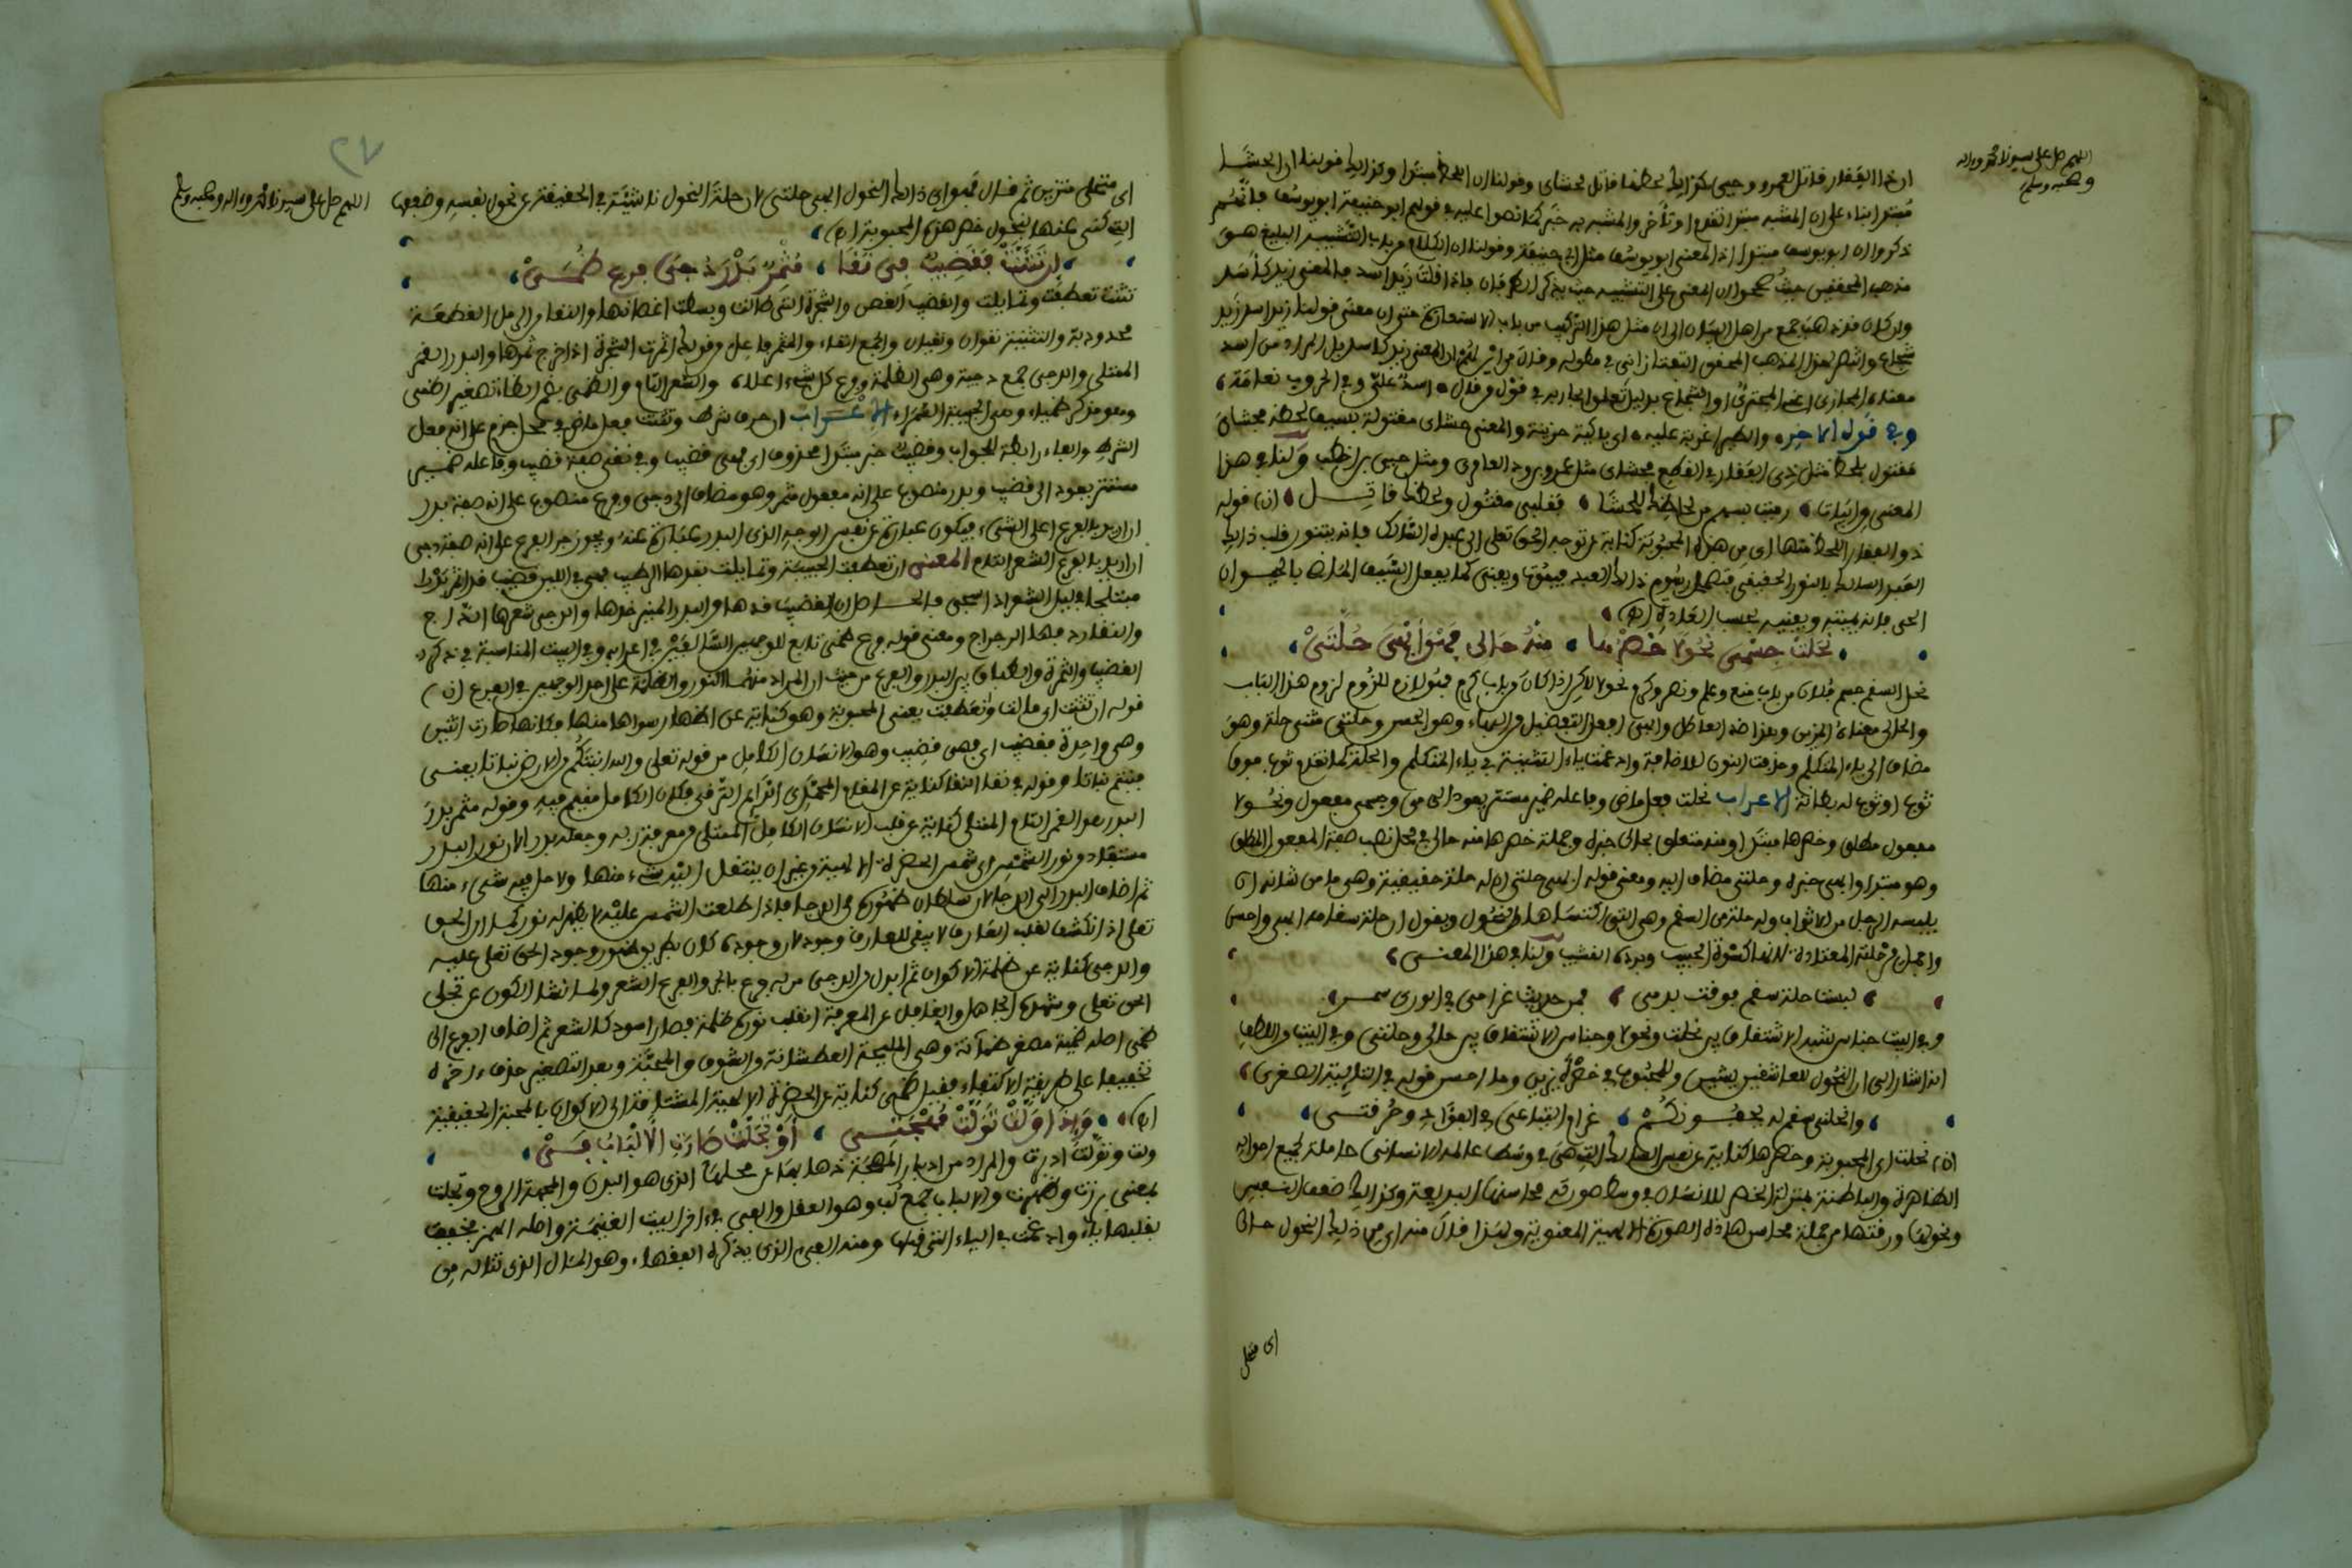 اللهم صل على سيدنا محمد وءاله
وصحبه وسلم
ان ذا الفقار قاتل لعمرو وحيى كذلك لحظها قاتل لحشاى وقولنا ان اللحظ مبتدا وكذلك قولنا ان الحشا
مبتدا بناء على ان المشبه مبتدا تقدم او تأخر والمشبه به خبر كما نصوا عليه في قولهم ابو حنيفة ابو يوسف فانهم
ذكروا ان ابو يوسف مبتدا اذ المعنى ابو يوسف مثل ابي حنيفة وقولنا ان الكلام من باب التشبيه البليغ هو
مذهب المحققين حيث صححوا ان المعنى على التشبيه حيث يذكر الطرفان فاذا قلت زيد اسد فالمعنى زيد كأسد
وان كان قد ذهب جمع من اهل البيان الى ان مثل هذا التركيب من باب الاستعارة حتى ان معنى قولنا زيد اسد زيد
شجاع وانتصر لهذا المذهب المحقق التفتازاني في مطوله وقال من اين لكم ان المعنى زيد كاسد بل المراد من اسد
معناه المجازى اعنى المجترئ او الشجاع بدليل تعلق الجار به في قول من قال اسد علي وفي الحروب نعامة
وفي قول الاخر والطير اغربة عليه اى باكية حزينة والمعنى حشاى مقتولة بسيف لحظه فحشاى
مقتول بلحظ مثل ذى الفقار في القطع فحشاى مثل عمرو بن ود العامرى ومثل حيى بن اخطب ولنا في هذا
المعنى من ابيات رمت بسهم من لحاظ للحشا فقلبي مقتول ولحظك قاتل (ن) قوله
ذو الفقار اللحظ منها اى من هذه المحبوبة كناية عن توجه الحق تعلى الى عبده السالك فانه يتنور قلب ذلك
العبد السالك بالنور الحقيقى فتضمحل رسوم ذلك العبد فيفوق ويفنى كما يفعل السيف المذكور بالحيوان
الحى فانه يميته ويفنيه بحسب العادة (ه)
نحلت جسمى نحولا خصرها منه حالى فهو ابهى حلتى
نحل السقم جسم فلان من باب منع وعلم ونصر وكرم نحولا لكن اذا كان من باب كرم فهو لازم للزوم هذا الباب
والحالى معناه المزين وهذا ضد العاطل وابهى افعل التفضيل من البهاء وهو الحسن وحلتى مثنى حلة وهو
مضاف الى ياء المتكلم وحذفت النون للاضافة وادغمت ياء التثنية في ياء المتكلم والحلة كما تقدم ثوب فوق
ثوب او ثوب له بطانة الاعراب نحلت فعل ماض وفاعله ضمير مستتر يعود الى مى وجسمى مفعول ونحولا
مفعول مطلق وخصرها مبتدا ومنه متعلق بحالى خبره وجملة خصرها منه حالى في محل نصب صفة المفعول المطلق
وهو مبتدا وابهى خبره وحلتى مضاف اليه ومعنى قوله ابهى حلتى ان له حلة حقيقية وهى ما من شانه ان
يلبسه الرجل من الاثواب وله حلة من السقم وهى التي اكتساها من النحول ويقول ان حلة سقامه ابهى واحسن
واجمل من حلته المعتادة لانها كسوة الحبيب وبرده القشيب ولنا في هذا المعنى
لبست حلة سقم فوقت بدنى فمن حديث غرامى في الورى سمر
وفي البيت جناس شبه الاشتقاق بين نحلت ونحولا وجناس الاشتقاق بين حالى وحلتى وفي البيت من اللطف
انه اشار الى ان النحول للعاشقين يشين وللمحبوب في خصره يزين وما احسن قوله في التائية الصغرى
وانحلنى سقم له بجفونكم غرام التياعى في الفؤاد وحرقتى
(ن) نحلت اى المحبوبة وخصرها كناية عن نفس السالك التي هى في وسط عالمه الانسانى حاملة لجميع احواله
الظاهرة والباطنة بمنزلة الخصر للانسان في وسط صورته محاسنها البديعة وكذلك ضعف النفس
ونحولها ورقتها من جملة محاسن هذه الصورة الالهية المعنوية ولهذا قال منه اى من ذلك النحول حالى
اى متحلى
٢٧
اللهم صل على سيدنا محمد وءاله وصحبه وسلم
اى متحلى متزين ثم قال فهو اى ذلك النحول ابهى حلتى لان حلة النحول ناشئة في الحقيقة عن نحول نفسه وضعفها
التي كنى عنها بنحول خصر هذه المحبوبة (ه)
ان تثنت فقضيب في نقا مثمر بدر دجى فرع ظمى
تثنت تعطفت وتمايلت والقضيب الغصن والشجرة التي طالت وبسطت اغصانها والنقا من الرمل القطعة
محدودبة والتثنية نقوان ونقيان والجمع انقاء والمثمر فاعل من قولك اثمرت الشجرة اذا خرج ثمرها والبدر القمر
الممتلى والدجى جمع دجية وهى الظلمة وفرع كل شىء اعلاه والشعر التام والظمى بضم الظاء تصغير اظمى
وهو مذكر ظمياء وهى الحبيبة السمراء الاعراب ان حرف شرط وتثنت فعل ماض في محل جزم على انه فعل
الشرط والفاء رابطة للجواب وقضيب خبر مبتدا محذوف اى فهى قضيب وفي نقى صفة قضيب وفاعله ضمير
مستتر يعود الى قضيب وبدر منصوب على انه مفعول مثمر وهو مضاف الى دجى وفرع منصوب على انه صفة بدر
ان اريد بالفرع اعلى الشىء فيكون عبارة عن نفس الوجه الذى البدر عبارة عنه ويجوز جر الفرع على انه صفة دجى
ان اريد بالفرع الشعر التام المعنى ان تعطفت الحبيبة وتمايلت بقدها الرطيب فهى في اللين قضيب قد اثمر بدرا
مبتلجا في ليل الشعر اذا سجى فالحاصل ان القضيب قدها والبدر المنير خدها والدجى شعرها الداج
والنقا ردفها الرجراج ومعنى قوله فرع ظمى تابع للوجهين السابقين في اعرابه وفي البيت المناسبة في ذكره
القضيب والثمرة والطباق بين البدر والفرع من حيث ان المراد منهما النور والظلمة على احد الوجهين في الفرع (ن)
قوله ان تثنت اى مالت وتعطفت يعنى المحبوبة وهو كناية عن اظهار سواها منها فكانها صارت اثنين
وهى واحدة فقضيب اى فهى قضيب وهو الانسان الكامل من قوله تعلى والله انبتكم من الارض نباتا يعنى
فنبتم نباتا وقوله في نقا النقا كناية عن المقام المحمدى الذى الترقى فكان الكامل مقيم فيه وقوله مثمر بدر
البدر هو القمر التام الممتلى كناية عن قلب الانسان الكامل الممتلى من معرفة ربه وجعله بدرا لان نور البدر
مستفاد من نور الشمس اى شمس الحضرة الالهية من غير ان ينتقل اليه شىء منها ولا حل فيه شىء منها
ثم اضاف البدر الى الدجا لان سلطان ظهوره في الدجا فاذا طلعت الشمس عليه لا يظهر له نور كما ان الحق
تعلى اذا انكشف لقلب العارف لا يبقى للعارف وجود لان وجوده كان بطريق ظهور وجود الحق تعلى عليه
والدجى كناية عن ظلمة الاكوان ثم ابدل من الدجى قوله فرع بالجر والفرع الشعر ولما نشا الكون عن تجلى
الحق تعلى وشهده الجاهل والغافل عن المعرفة انقلب نوره ظلمة فصار اسود كالشعر ثم اضاف الفرع الى
ظمى اصله ظمية مصغر ظمآنة وهى المليحة العطشانة من الشوق والمحبة وبعد التصغير حذف ءاخره
تخفيفا على طريقة الاكتفاء فقيل ظمى كناية عن الحضرة الالهية المشتاقة الى الاكوان بالمحبة الحقيقية
(ه) وإذا ولت تولت مهجتى أو تجلت صارت الألباب فى
ولت وتولت ادبرت والمراد من ادبار المهجة ذهابها عن محلها الذى هو البدن والمهجة الروح وتجلت
بمعنى برزت وظهرت والالباب جمع لب وهو العقل والفى في ءاخر البيت الغنيمة واصله الهمز فخفف
بقلبها ياء وادغمت في الياء التي قبلها ومنه الفىء الذى يذكره الفقهاء وهو المال الذى تناله من